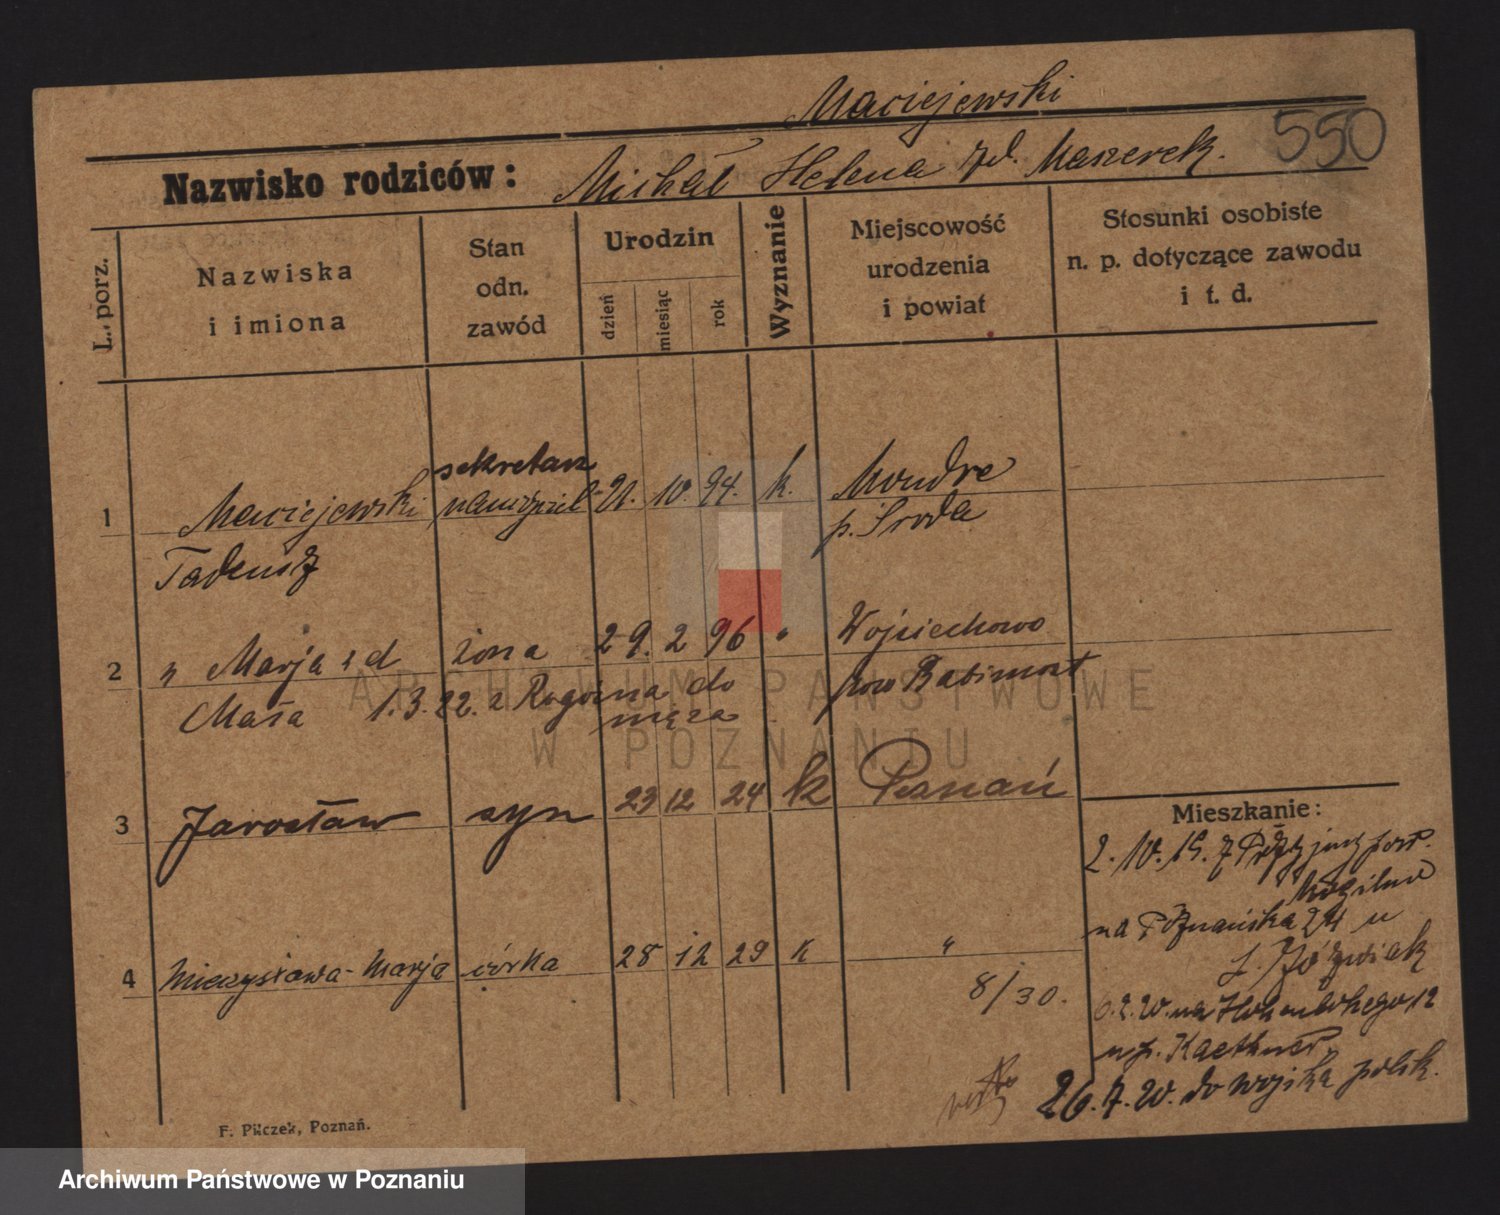 Maciejewski
550
Nazwisko rodziców: Michał Helena zd.
L. porz.
Nazwiska
i imiona
Stan
odn.
zawód
Urodzin
dzień
miesiąc
rok
Wyznanie
Miejscowość
urodzenia
i powiat
Stosunki osobiste
n. p. dotyczące zawodu
i t. d.
sekretarz
1 Maciejewski 21. 10. 94. k. Mondre
Tadeusz p. Środa
2 " Marja żona 29. 2 96 " Wojciechowo
1.3.22. z Rogoźna do pow Babimost
męża
3 Jarosław syn 23 12 24 k Poznań
4 Mieczysława-Marja córka 28 12 29 k "
8/30.
Mieszkanie:
2. 10. 19. z
na Poznańska 24 u
Jóźwiak
12
u p.
26.7.20. do wojska polsk.
F. Pilczek, Poznań.
ARCHIWUM PAŃSTWOWE
W POZNANIU
Archiwum Państwowe w Poznaniu